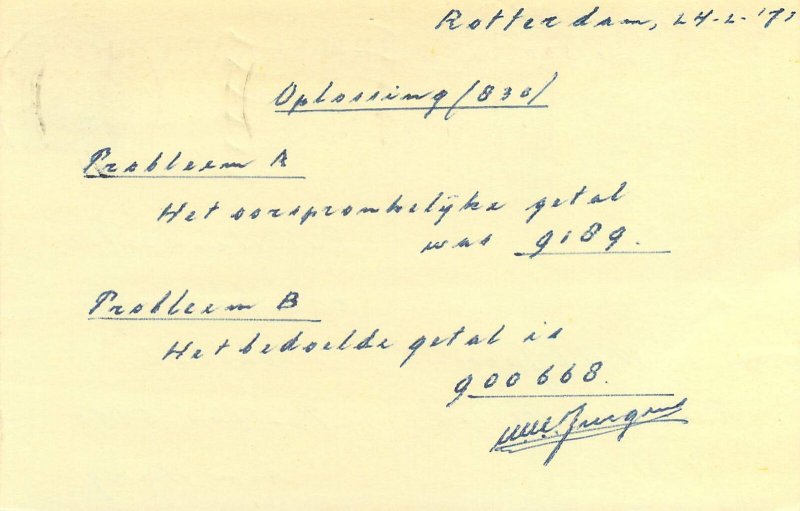 Rotterdam, 24-2-'71
Oplossing (830)
Probleem A
Het oorspronkelijke getal
was 9189.
Probleem B
Het bedoelde getal is
900668.